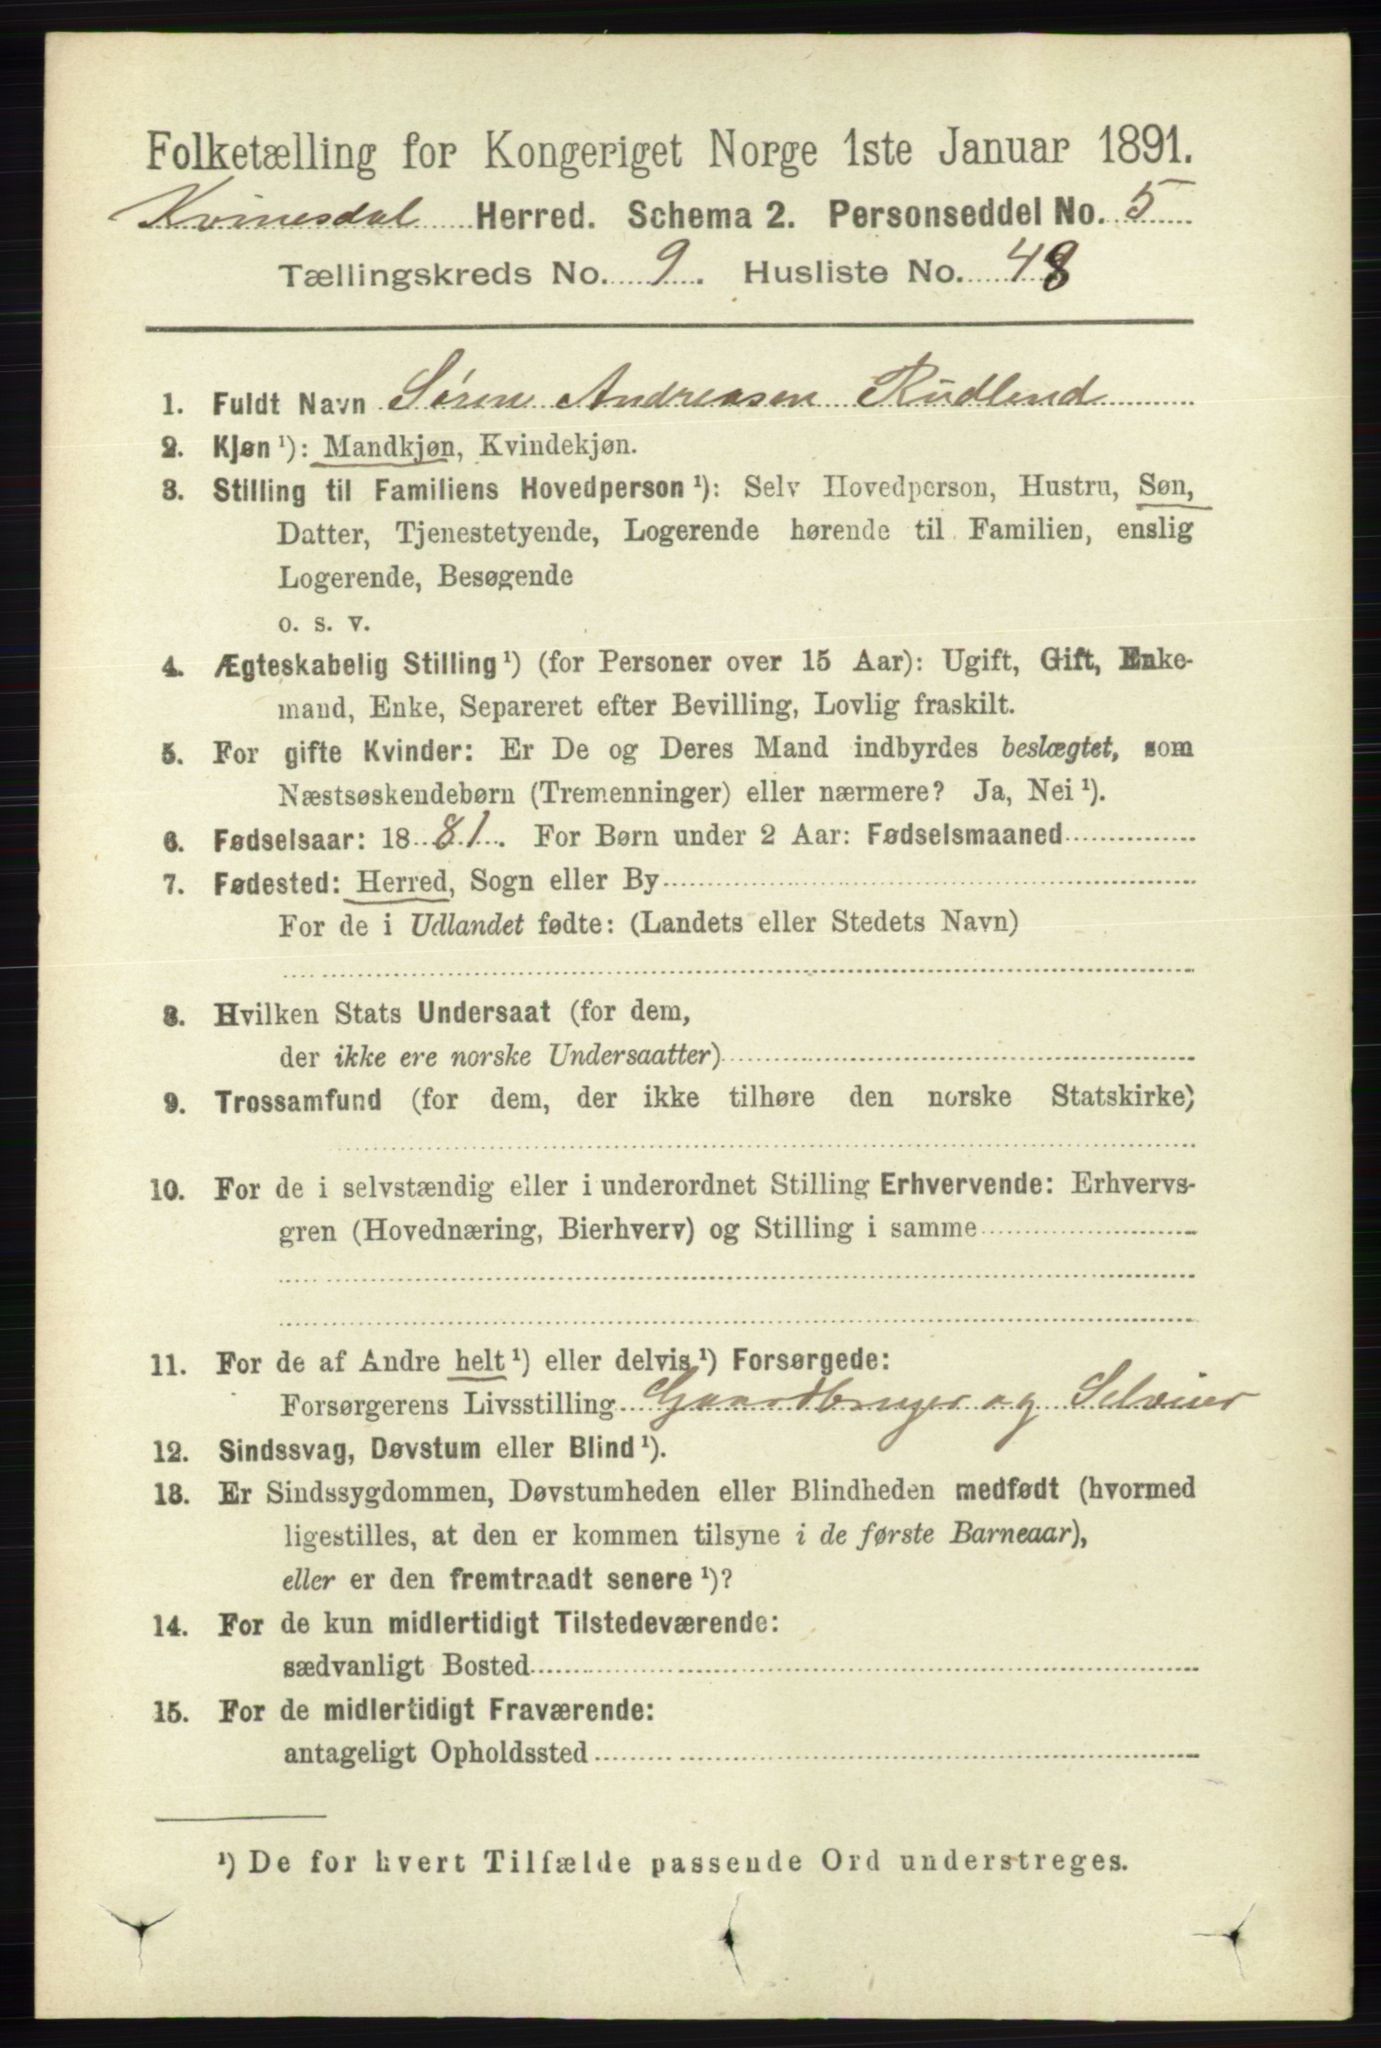 Folketælling for Kongeriget Norge 1ste Januar 1891.
Kvinesdal Herred. Schema 2. Personseddel No. 5
Tællingskreds No. 9. Husliste No. 48
1. Fuldt Navn Søren Andreasen Rudland
2. Kjøn ¹): Mandkjøn, Kvindekjøn.
3. Stilling til Familiens Hovedperson ¹): Selv Hovedperson, Hustru, Søn,
Datter, Tjenestetyende, Logerende hørende til Familien, enslig
Logerende, Besøgende
o. s. v.
4. Ægteskabelig Stilling ¹) (for Personer over 15 Aar): Ugift, Gift, Enke-
mand, Enke, Separeret efter Bevilling, Lovlig fraskilt.
5. For gifte Kvinder: Er De og Deres Mand indbyrdes beslægtet, som
Næstsøskendebørn (Tremenninger) eller nærmere? Ja, Nei ¹).
6. Fødselsaar: 1881. For Børn under 2 Aar: Fødselsmaaned
7. Fødested: Herred, Sogn eller By
For de i Udlandet fødte: (Landets eller Stedets Navn)
8. Hvilken Stats Undersaat (for dem,
der ikke ere norske Undersaatter)
9. Trossamfund (for dem, der ikke tilhøre den norske Statskirke)
10. For de i selvstændig eller i underordnet Stilling Erhvervende: Erhvervs-
gren (Hovednæring, Bierhverv) og Stilling i samme
11. For de af Andre helt ¹) eller delvis ¹) Forsørgede:
Forsørgerens Livsstilling Gaardbruger og Selveier
12. Sindssvag, Døvstum eller Blind ¹).
13. Er Sindssygdommen, Døvstumheden eller Blindheden medfødt (hvormed
ligestilles, at den er kommen tilsyne i de første Barneaar),
eller er den fremtraadt senere ¹)?
14. For de kun midlertidigt Tilstedeværende:
sædvanligt Bosted
15. For de midlertidigt Fraværende:
antageligt Opholdssted
¹) De for hvert Tilfælde passende Ord understreges.